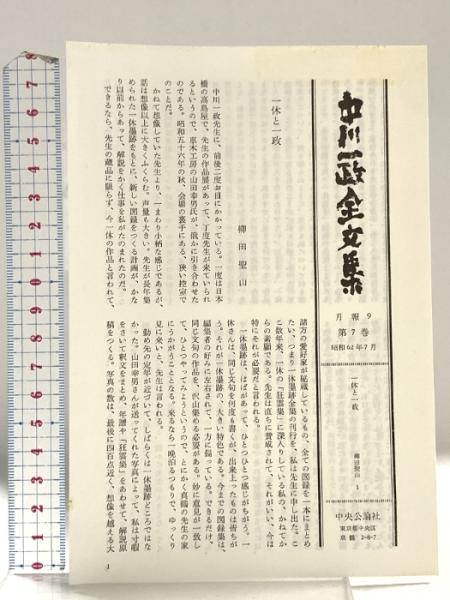 中川一政全文集
月報9
第7巻
昭和62年7月
一休と一政
柳田聖山 1
中央公論社
東京都中央区
京橋 2-8-7
一休と一政
柳田聖山
中川一政先生に、前後二度お目にかかっている。一度は日本
橋の高島屋で、先生の作品展があって、丁度先生が来ていられ
るというので、恵木工房の山田幸男氏が、俄かに引き合わせた
のである。昭和五十六年の秋、会場の裏手にある、狭い控室で
のことだ。
かねて想像していた先生より、一まわり小柄な感じであるが、
話は想像以上に大きくふくらむ。声量も大きい。先生が長年集
められた一休墨跡をもとに、新しい図録をつくる計画が、かな
り以前からあって、解説をかく仕事を私がたのまれたのだ。
できるなら、先生の蔵品に限らず、今一休の作品と言われて、
諸方の愛好家が秘蔵しているもの、全ての図録を一本にまとめ
たい、つまり一休墨跡全集の刊行を、私は先生に申し出た。こ
こ数年来、一休の『狂雲集』に深入りしている私の、かねてか
らの素願である。先生は直ちに賛成されて、それがいい、今は
特にそれが必要だと言われる。
一休墨跡は、はばがあって、ひとつひとつ感じがちがう。一
休さんは、同じ文句を何度も書くが、出来上ったものは皆ちが
う。それが一休墨跡の、大きい特色である。今までの図録集は、
編集者の好みに左右されて、一方に偏っている。できるだけ、
同じ文句の作品を、沢山集める必要がある。妙に意見が一致し
て、ひとつやってみようというので、とにかく真鶴の先生の家
にうかがうこととなる。来るなら一晩泊るつもりで、ゆっくり
見に来いと、先生は言われる。
勤め先の定年が近づいて、しばらくは一休墨跡どころではな
かった。山田幸男さんが送ってくれた写真によって、私は寸暇
をさいて釈文をまとめ、年譜や『狂雲集』をあわせて、解説原
稿をつくる。写真の数は、最後に四百点近く、想像を越える大
1